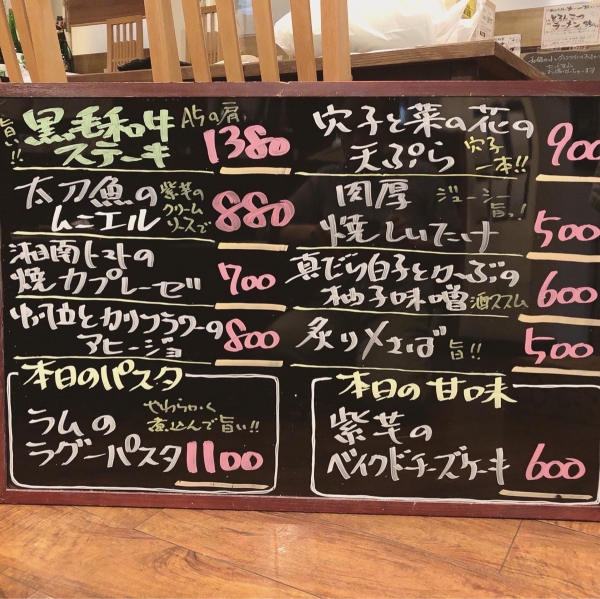 旨い!!
黒毛和牛 A5の肩
ステーキ 1380
太刀魚の 紫芋の
ムニエル クリーム
ソースで 880
湘南トマトの
焼カプレーゼ 700
カリフラワーの
アヒージョ 800
本日のパスタ
ラムの やわらかく
煮込んで旨い!!
ラグーパスタ 1100
穴子と菜の花の
天ぷら 穴子
一本!! 900
肉厚 ジューシー
旨っ!
焼しいたけ 500
真だら白子とかぶの
柚子味噌 酒ススム 600
炙り〆さば 旨!! 500
本日の甘味
紫芋の
ベイクドチーズケーキ 600
とろんこつ
ラーメン